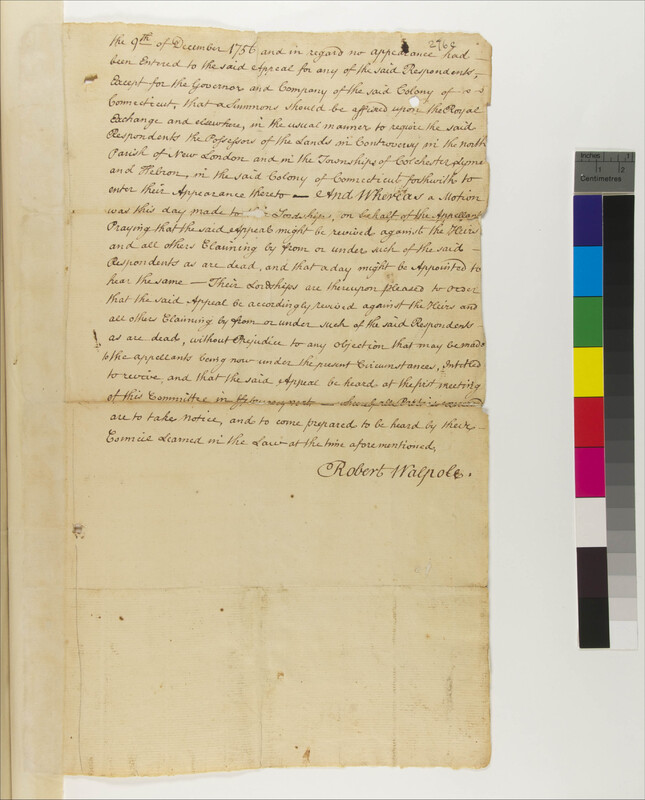 276g
the 9th of December 1756 and in regard no appearance had
been Entred to the said Appeal for any of the said Respondents,
Except for the Governor and Company of the said Colony of
Connecticut, that a Summons should be affixed upon the Royal
Exchange and elsewhere, in the usual manner to require the said
Respondents the Possessors of the Lands in Controversy in the north
Parish of New London and in the Townships of Colchester Lyme
and Hebron, in the said Colony of Connecticut forthwith to
enter their Appearance thereto — And Whereas a Motion
was this day made to their Lordships, on behalf of the Appellants
Praying that the said Appeal might be revived against the Heirs
and all others Claiming by from or under such of the said —
Respondents as are dead, and that a day might be Appointed to
hear the same — Their Lordships are thereupon pleased to order
that the said Appeal be accordingly revived against the Heirs and
all others Claiming by from or under such of the said Respondents
as are dead, without Prejudice to any Objection that may be made
to the appellants being now under the present Circumstances, Intitled
to revive, and that the said Appeal be heard at the first meeting
of this Committee in
are to take notice, and to come prepared to be heard by their
Council Learned in the Law at the time aforementioned,
Robert Walpole.
Inches 1
1 2
Centimetres